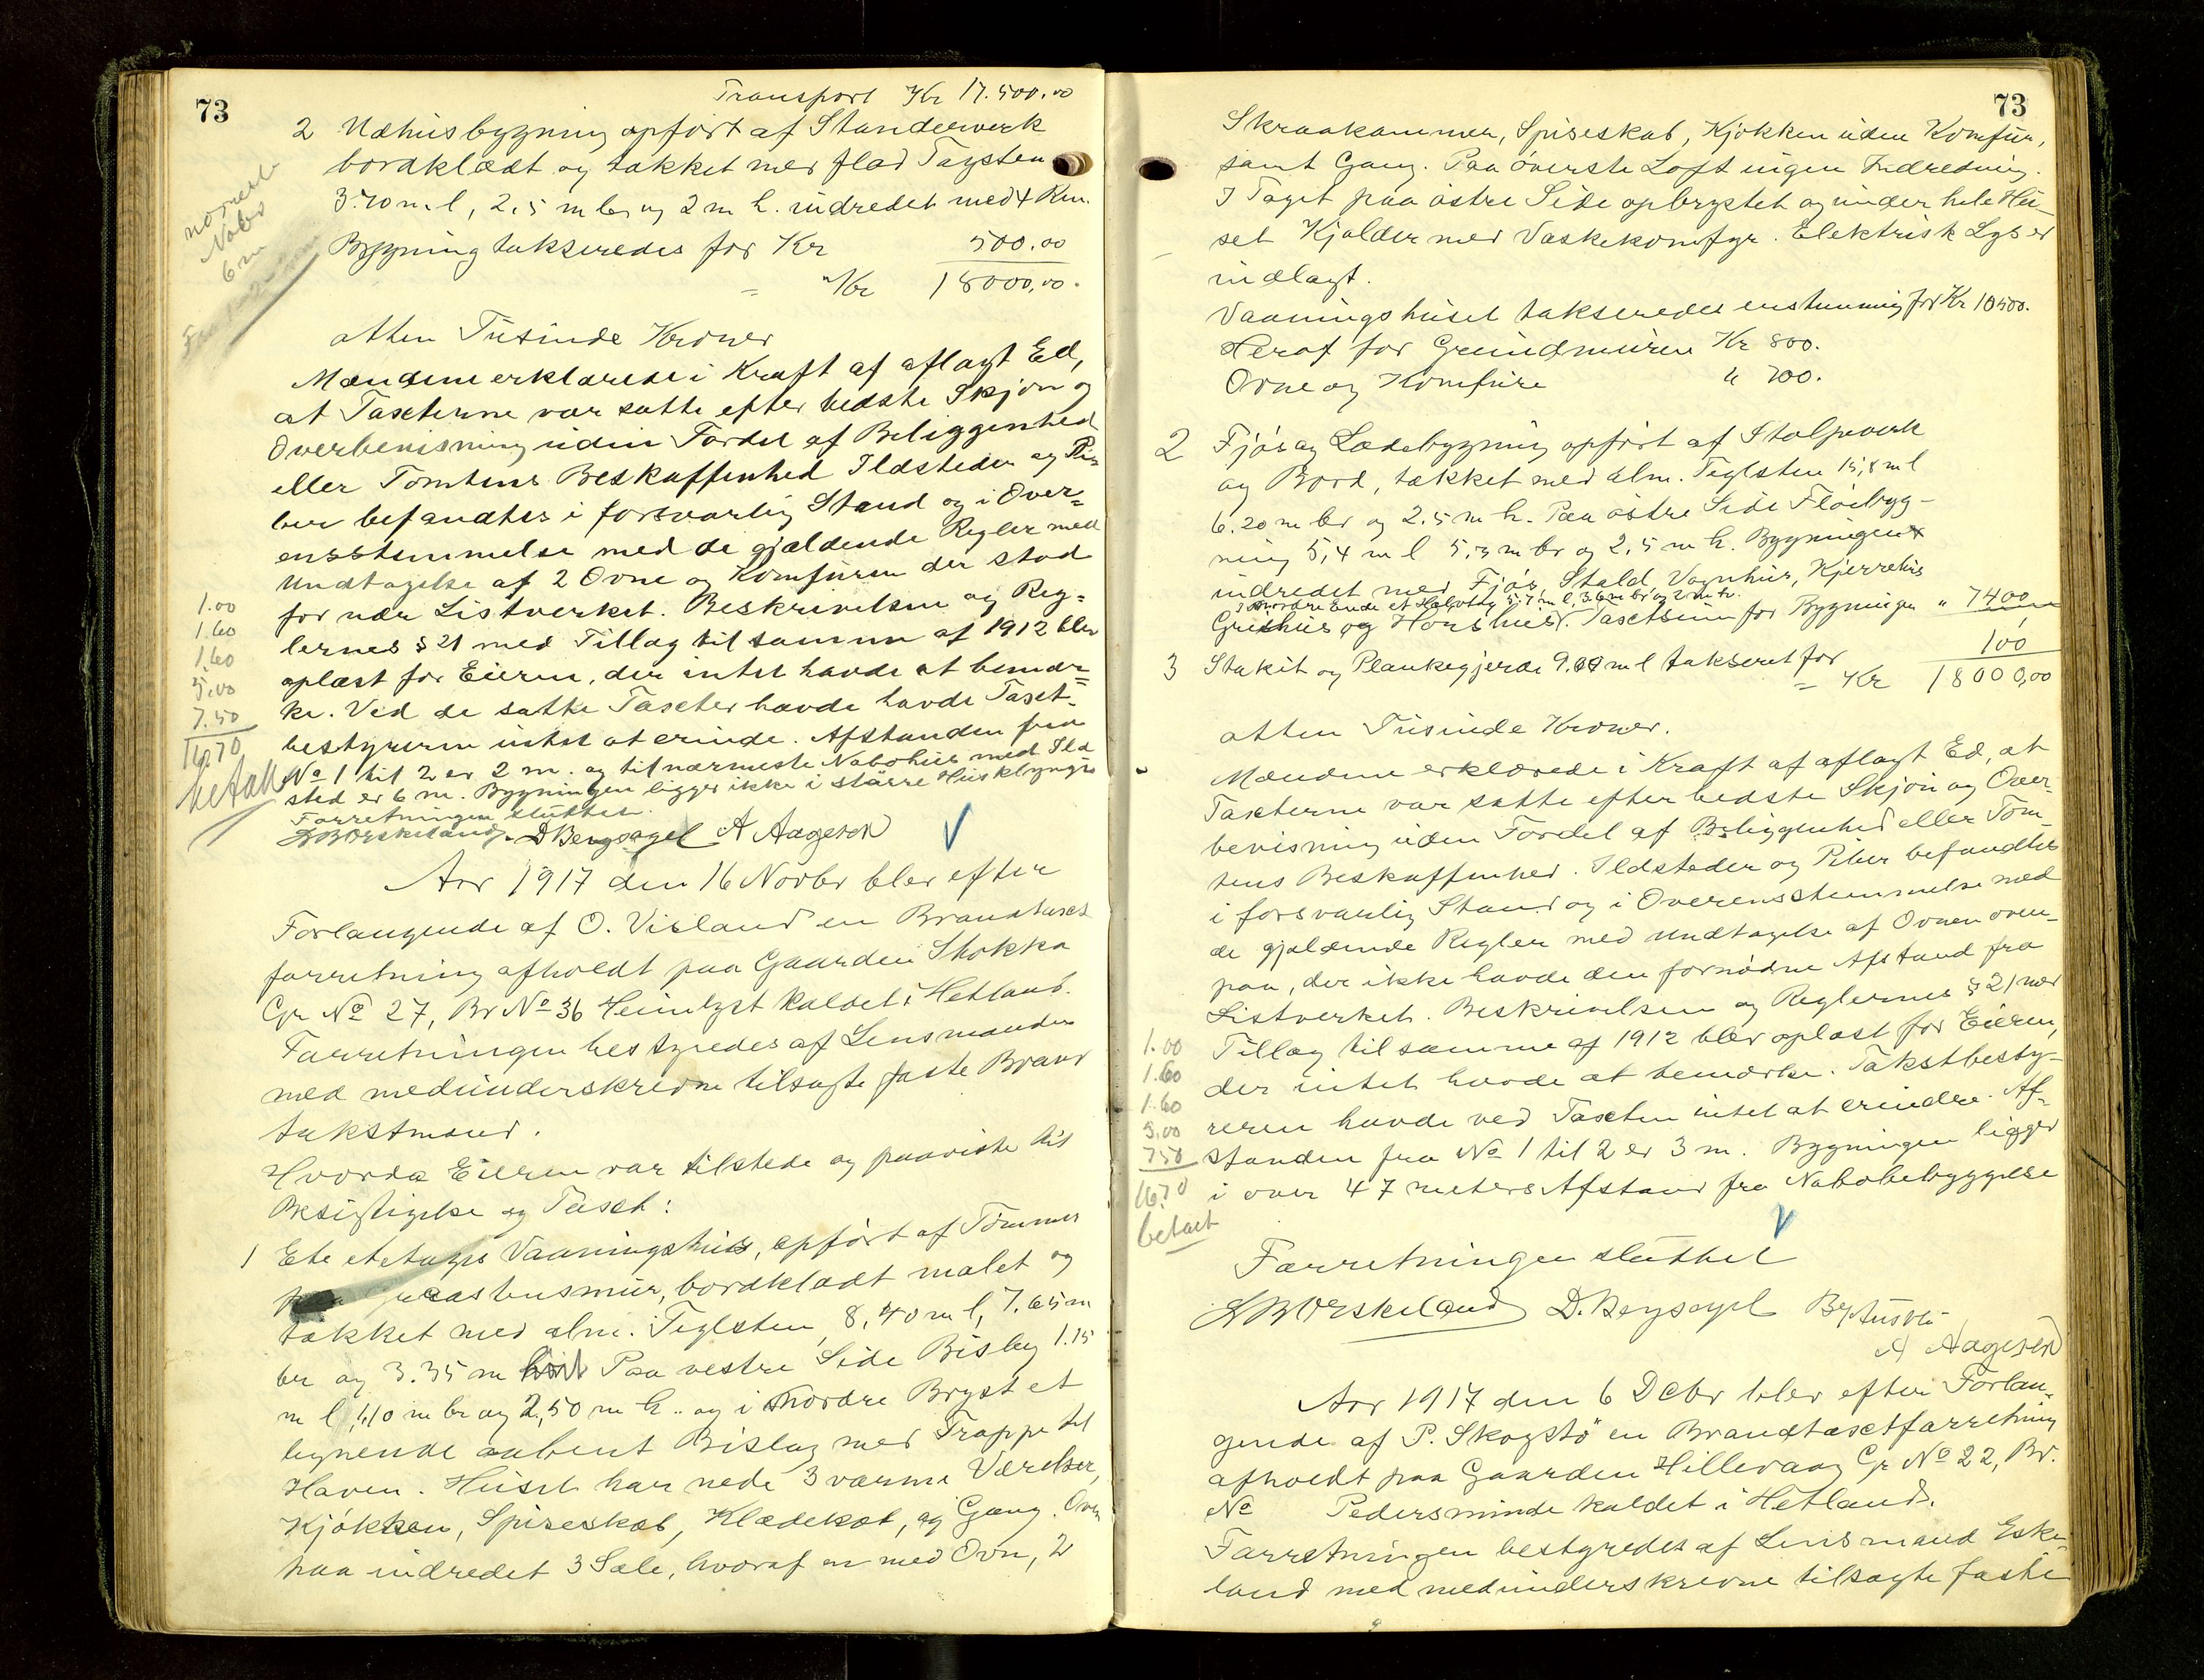 73
Transport Kr 17.500.00
2 Udhusbygning opført af Standerverk
bordklædt og tækket med flad Tagsten
3.70 m l, 2,5 m br og 2 m h. indredet med 4 Rum.
Bygning takseredes for Kr 500.00
= Kr 18000,00.
nærmeste
Nabo
6 m
atten Tusinde Kroner
Mændene erklærede i Kraft af aflagt Ed,
at Taxterne var satte efter bedste Skjøn og
Overbevisning uden Fordel af Beliggenhed
eller Tomtens Beskaffenhed Ildsteder og Pi-
ber befandtes i forsvarlig Stand og i Over=
ensstemmelse med de gjældende Regler med
Undtagelse af 2 Ovne og Komfuren der stod
for nær Listverket. Beskrivelsen og Reg=
lernes § 21 med Tillæg til samme af 1912 blev
oplæst for Eieren, der intet havde at bemær=
ke. Ved de satte Taxter havde havde Taxt-
bestyreren intet at erindre. Afstanden fra
No 1 til 2 er 2 m. og til nærmeste Nabohus med Ild
sted er 6 m. Bygningen ligger ikke i større Husklynge
Forretningen sluttet.
1.00
1.60
1.60
5.00
7.50
16.70
betalt
D Bergsagel A Aagesen
Aar 1917 den 16 Novbr blev efter
Forlangende af O. Visland en Brandtaxt
forretning afholdt paa Gaarden Stokka
Gr No 27, Br No 36 Heimlyst kaldet i Hetland.
Forretningen bestyredes af Lensmanden
med medunderskrevne tilsagte faste Brand
takstmænd.
Hvorda Eieren var tilstede og paaviste til
Besigtigelse og Taxt:
1 Ete etetages Vaaningshus, opført af Tømmer
paa graastensmur, bordklædt malet og
tækket med alm. Teglsten, 8,40 m l, 7.65 m
br og 3.35 m Paa vestre Side Bislag 1.15
m l, 1,10 m br og 2,50 m h. og i nordre Bryst et
aabent Bislag med Trappe til
Haven. Huset har nede 3 varme Værelser,
Kjøkken, Spiseskab, Klædekot, og Gang. Oven
paa indredet 3 Sale, hvoraf en med Ovn, 2
73
Skraakammer, Spiseskab, Kjøkken uden Komfur,
samt Gang. Paa øverste Loft ingen Indredning.
I Taget paa østre Side opbrystet og under hele Hu-
set Kjælder med Vaskekomfyr. Elektrisk Lys er
indlagt.
Vaaningshuset takseredes enstemmig for Kr 10500.
Heraf for Grundmuren Kr 800.
Ovne og Komfure " 700.
2 Fjøs og Ladebygning opført af Stolpeverk
og Bord, tækket med alm. Teglsten 15,8 m l
6.20 m br og 2.5 m h. Paa østre Side Fløibyg-
ning 5,4 m l 5,3 m br og 2,5 m h. Bygningen
indredet med Fjøs, Stald, Vognhus, Kjerrehus
I nordre Ende et Halvtag 5,7 m l, 3.6 m br og 2 m h.
Grishus og Hønshus. Taxtsum for Bygningen " 7400
3 Stakit og Plankegjerde 9.00 m l takseret for 100
= Kr 18000,00
atten Tusinde Kroner.
Mændene erklærede i Kraft af aflagt Ed, at
Taxterne var satte efter bedste Skjøn og Over-
bevisning uden Fordel af Beliggenhed eller Tom-
tens Beskaffenhed. Ildsteder og Piber befandtes
i forsvarlig Stand og i Overensstemmelse med
de gjældende Regler med Undtagelse af Ovnen oven-
paa, der ikke havde den fornødne Afstand fra
Listverket. Beskrivelsen og Reglernes § 21 med
Tillæg til samme af 1912 blev oplæst for Eieren,
der intet havde at bemærke. Takstbesty-
reren havde ved Taxten intet at erindre. Af-
standen fra No 1 til 2 er 3 m. Bygningen ligger
i over 47 meters Afstand fra Nabobebyggelse
1.00
1.60
1.60
5.00
7.50
16.70
betalt
Forretningen sluttet
D. Bergsagel
A Aagesen
Aar 1917 den 6 Dcbr blev efter Forlan-
gende af P. Skogstø en Brandtaxtforretning
afholdt paa Gaarden Hillevaag Gr No 22, Br.
No Pedersminde kaldet i Hetland.
Forretningen bestyredes af Lensmand Eske-
land med medunderskrevne tilsagte faste